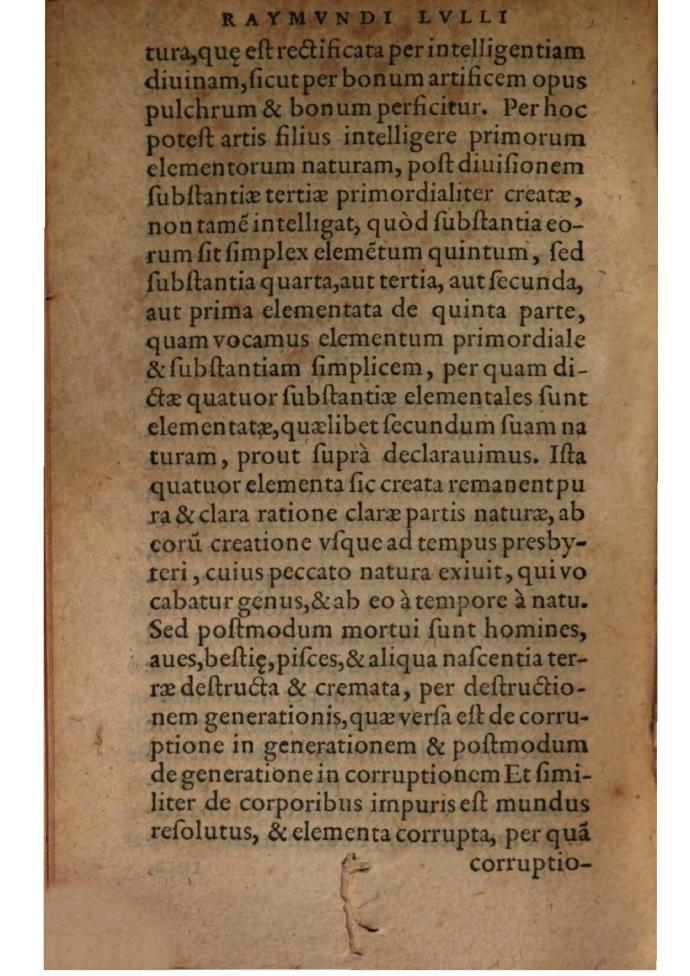 RAYMVNDI LVLLI
tura,quę eſt rectificata per intelligentiam
diuinam,ſicut per bonum artificem opus
pulchrum & bonum perficitur. Per hoc
poteſt artis filius intelligere primorum
elementorum naturam, poſt diuiſionem
ſubſtantiæ tertiæ primordialiter creatæ,
non tamẽ intelligat, quòd ſubſtantia eo-
rum ſit ſimplex elemẽtum quintum, ſed
ſubſtantia quarta,aut tertia, aut ſecunda,
aut prima elementata de quinta parte,
quam vocamus elementum primordiale
& ſubſtantiam ſimplicem, per quam di-
ctæ quatuor ſubſtantiæ elementales ſunt
elementatę,quælibet ſecundum ſuam na
turam, prout ſuprà declarauimus. Iſta
quatuor elementa ſic creata remanent pu
ra & clara ratione claræ partis naturæ, ab
eorũ creatione vſque ad tempus presby-
teri, cuius peccato natura exiuit, qui vo
cabatur genus,& ab eo à tempore à natu.
Sed poſtmodum mortui ſunt homines,
aues,beſtię,piſces,& aliqua naſcentia ter-
ræ deſtructa & cremata, per deſtructio-
nem generationis,quæ verſa eſt de corru-
ptione in generationem & poſtmodum
de generatione in corruptionem Et ſimi-
liter de corporibus impuris eſt mundus
reſolutus, & elementa corrupta, per quã
corruptio-